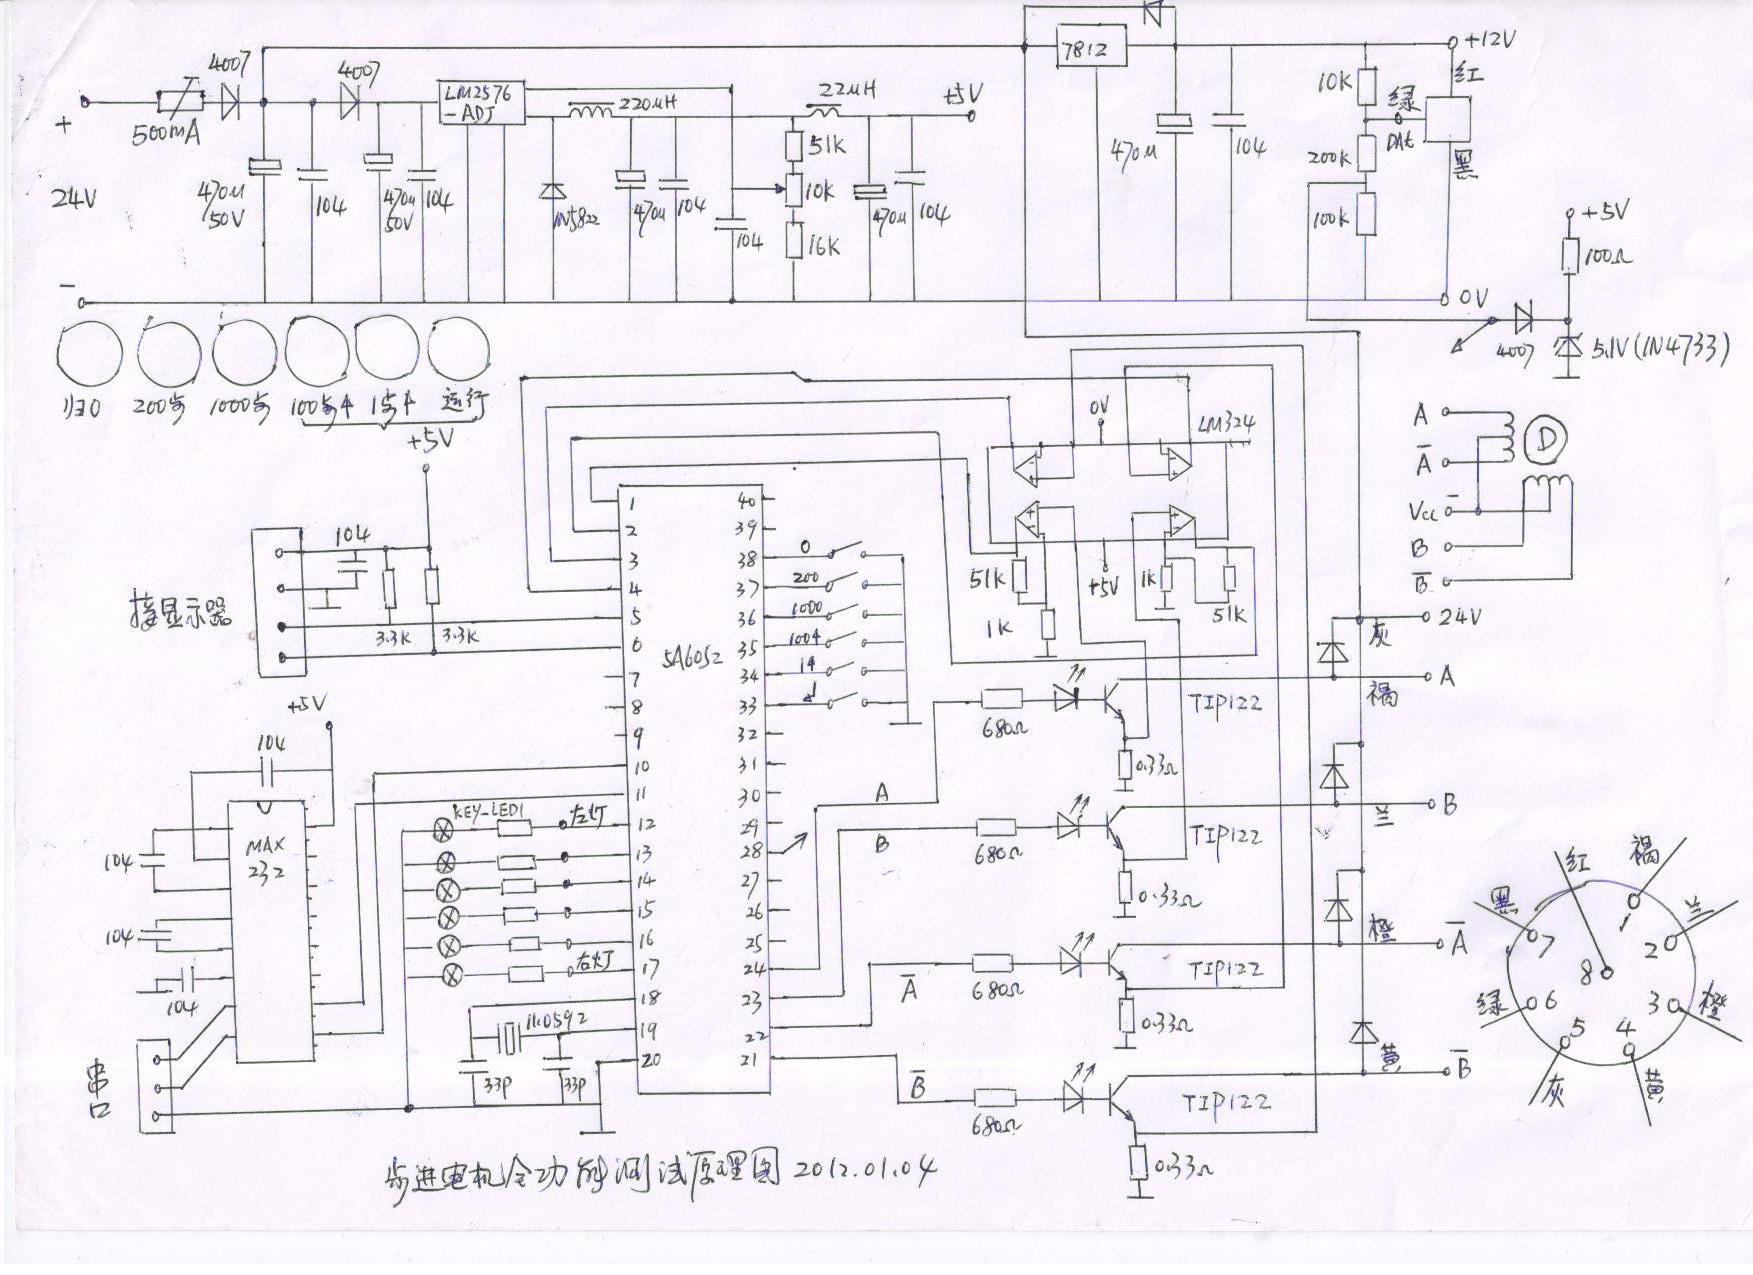 4007
4007
LM2576
-ADJ
220uH
22uH
+5V
7812
+12V
红
+
500mA
24V
470u
50V
104
470u
50V
104
1N5822
470u
104
104
51K
10K
16K
470u
104
470u
104
10K
200K
100K
绿
DAt
黑
-
0V
+5V
100Ω
4007
5.1V(1N4733)
归0
200步
1000步
运行
+5V
0V
LM324
A
A̅
Vcc
B
B̅
D
接显示器
104
3.3K
3.3K
1
2
3
4
5
6
7
8
9
10
11
12
13
14
15
16
17
18
19
20
5A60S2
40
39
38
37
36
35
34
33
32
31
30
29
28
27
26
25
24
23
22
21
0
200
1000
51K
1K
+5V
1K
51K
24V
灰
A
褐
680Ω
TIP122
0.33Ω
A
B
兰
B
680Ω
TIP122
0.33Ω
A̅
橙
A̅
680Ω
TIP122
0.33Ω
B̅
黄
B̅
680Ω
TIP122
0.33Ω
+5V
104
MAX
232
104
104
104
KEY-LED1
左灯
右灯
11.0592
33P
33P
串口
黑
红
褐
兰
橙
黄
灰
绿
1
2
3
4
5
6
7
8
步进电机全功能测试原理图 2012.01.04